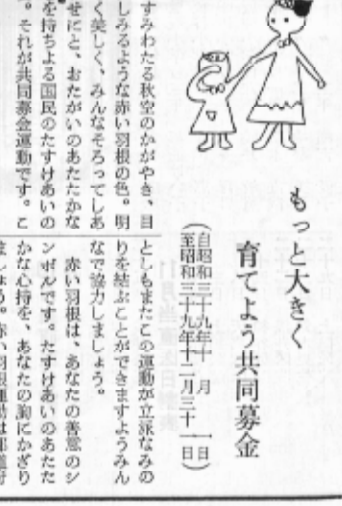 もっと大きく
育てよう共同募金
（自昭和三十九年十 月 一日
至昭和三十九年十二月三十一日）
すみわたる秋空のかがやき、目
しみるような赤い羽根の色。明
く美しく、みんなそろってしあ
せにと、おたがいのあたたかな
を持ちよる国民のたすけあいの
。それが共同募金運動です。こ
としもまたこの運動が立派なみの
りを結ぶことができますようみん
なで協力しましょう。
赤い羽根は、あなたの善意のシ
ンボルです。たすけあいのあたた
かな心持を、あなたの胸にかざり
ましょう。赤い羽根運動は都道府